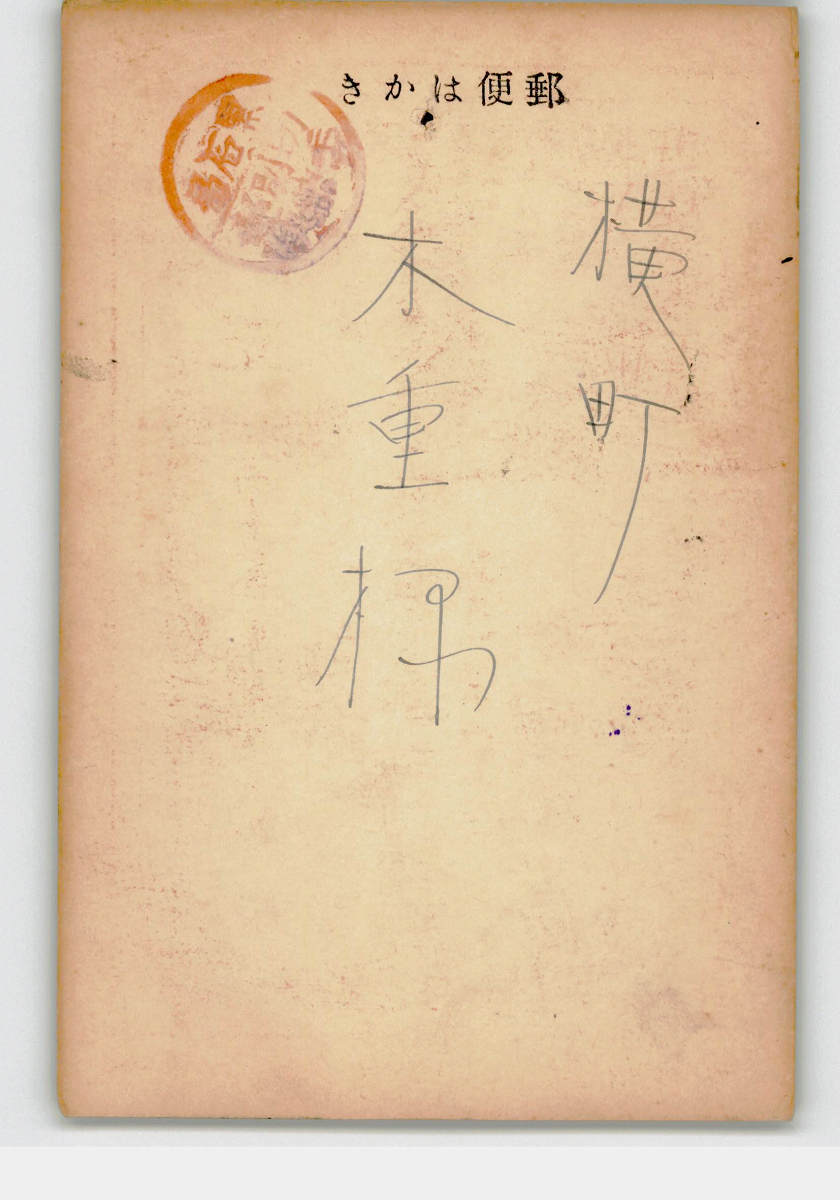 郵便はかき
横町
木重様